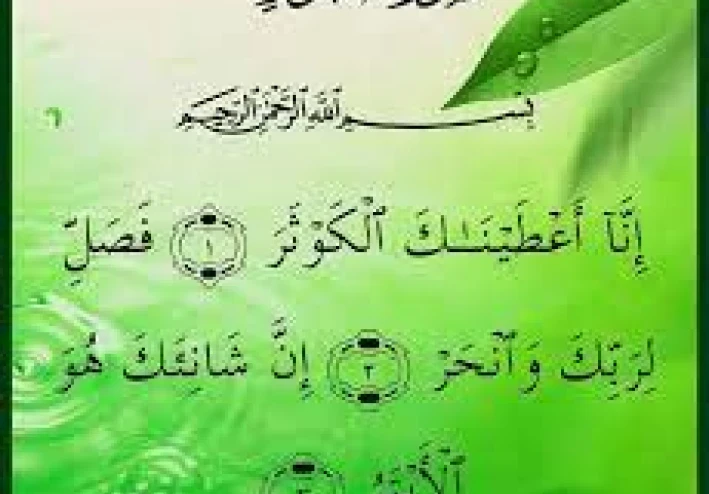 بِسْمِ ٱللَّهِ ٱلرَّحْمَٰنِ ٱلرَّحِيمِ
إِنَّآ أَعْطَيْنَـٰكَ ٱلْكَوْثَرَ ١ فَصَلِّ
لِرَبِّكَ وَٱنْحَرْ ٢ إِنَّ شَانِئَكَ هُوَ
ٱلْأَبْتَرُ ٣